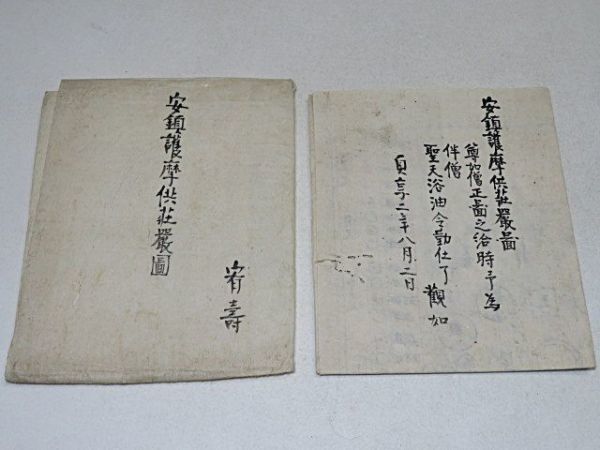 安鎮護摩供莊嚴圖
宥壽
安鎮護摩供莊嚴啚
尊如僧正啚之給時予為
伴僧
聖天浴油令勤仕了 觀如
貞享二年八月二日